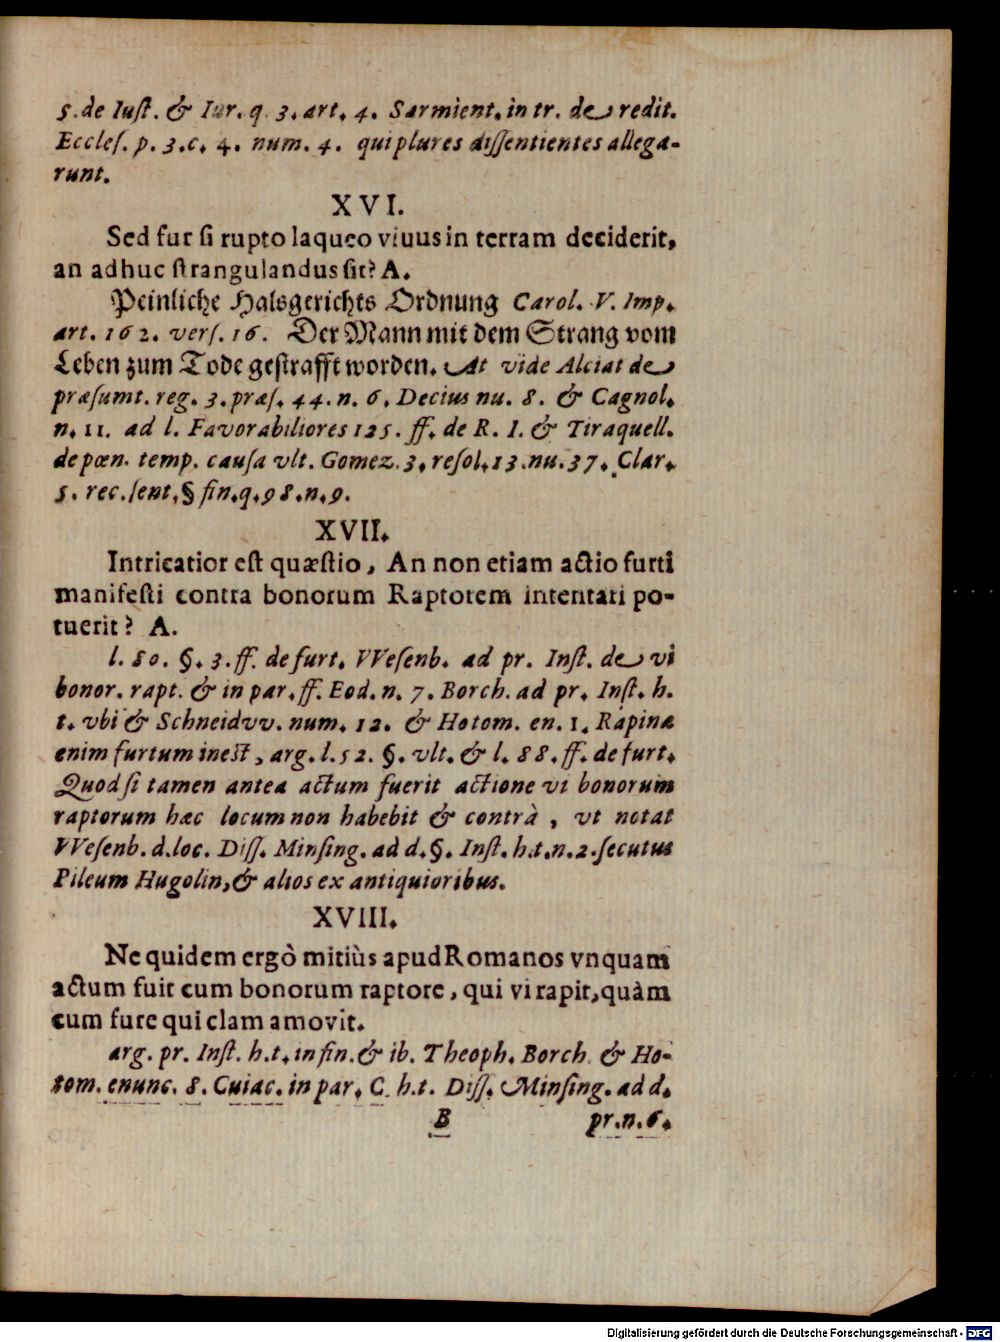 5. de Iuſt. & Iur. q. 3. art. 4. Sarmient. in tr. de redit.
Eccleſ. p. 3. c. 4. num. 4. qui plures diſſentientes allega-
runt.
XVI.
Sed fur ſi rupto laqueo viuus in terram deciderit,
an adhuc ſtrangulandus ſit? A.
Peinliche Halsgerichts Ordnung Carol. V. Imp.
art. 162. verſ. 16. Der Mann mit dem Strang vom
Leben zum Tode geſtrafft worden. At vide Alciat de
præſumt. reg. 3. præſ. 44. n. 6. Decius nu. 8. & Cagnol.
n. 11. ad l. Favorabiliores 125. ff. de R. I. & Tiraquell.
de pœn. temp. cauſa vlt. Gomez. 3. reſol. 13. nu. 37. Clar.
5. rec. ſent. § fin. q. 98. n. 9.
XVII.
Intricatior eſt quæſtio, An non etiam actio furti
manifeſti contra bonorum Raptorem intentari po-
tuerit? A.
l. 80. §. 3. ff. de furt. VVeſenb. ad pr. Inſt. de vi
bonor. rapt. & in par. ff. Eod. n. 7. Borch. ad pr. Inſt. h.
t. vbi & Schneidvv. num. 12. & Hotom. en. 1. Rapinæ
enim furtum ineſt, arg. l. 52. §. vlt. & l. 88. ff. de furt.
Quod ſi tamen antea actum fuerit actione vi bonorum
raptorum hæc locum non habebit & contrà, vt notat
VVeſenb. d. loc. Diſſ. Minſing. ad d. §. Inſt. h. t. n. 2. ſecutus
Pileum Hugolin, & alios ex antiquioribus.
XVIII.
Ne quidem ergò mitiùs apud Romanos vnquam
actum fuit cum bonorum raptore, qui vi rapit, quàm
cum fure qui clam amovit.
arg. pr. Inſt. h. t. in fin. & ib. Theoph. Borch. & Ho-
tom. enunc. 8. Cuiac. in par. C. h. t. Diſſ. Minſing. ad d.
B pr. n. 6.
Digitalisierung gefördert durch die Deutsche Forschungsgemeinschaft - DFG